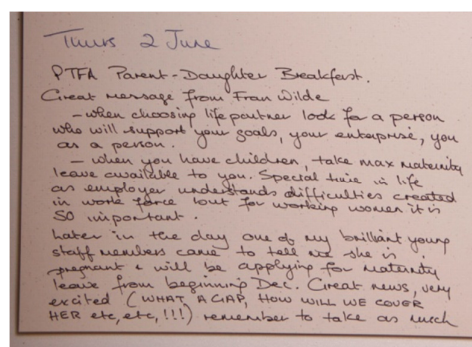 Thurs 2 June
PTFA Parent-Daughter Breakfast.
Great message from Fran Wilde
- when choosing life partner look for a person
who will support your goals, your enterprise, you
as a person.
- when you have children, take max maternity
leave available to you. Special time in life
as employer understands difficulties created
in work force but for working women it is
SO important.
Later in the day one of my brilliant young
staff members came to tell me she is
pregnant & will be applying for maternity
leave from beginning Dec. Great news, very
excited (WHAT A GAP, HOW WILL WE COVER
HER etc, etc, !!!) remember to take as much